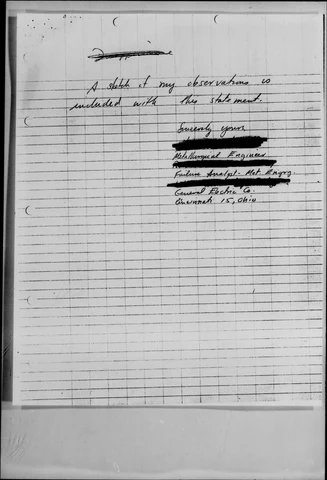 A sketch of my observations is
included with this statement.
Sincerely yours,
Metallurgical Engineer
Failure Analyst - Met Engrg.
General Electric Co.
Cincinnati 15, Ohio